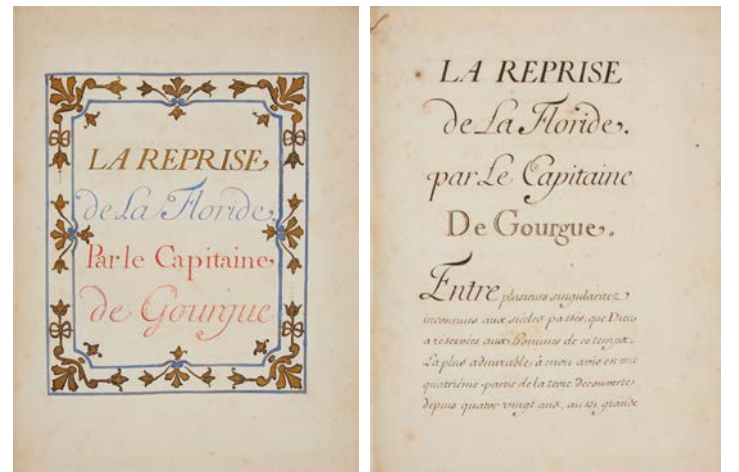 LA REPRISE
de La Floride.
Par le Capitaine
de Gourgue
LA REPRISE
de La Floride.
par Le Capitaine
De Gourgue.
Entre plusieurs singularitez
inconnues aux siecles passés, que Dieu
a réservées aux hommes de ce temps.
La plus admirable à mon avis est une
quatriéme partie de la terre découverte,
depuis quatre vingt ans, aussi grande